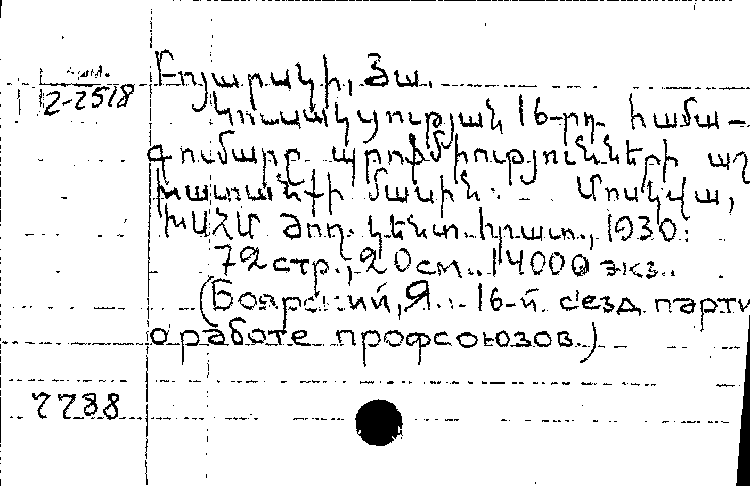 Բոյարսկի, Յա.
2-2518
Կուսակցության 16-րդ համա-
գումարը պրոֆմիությունների աշ
խատանքի մասին: Մոսկվա,
ԽՍՀՄ ժող. կենտ. հրատ., 1930:
72 стр., 20 см. 14000 экз.
(Боярский, Я. 16-й с'езд парти
о работе профсоюзов.)
7788